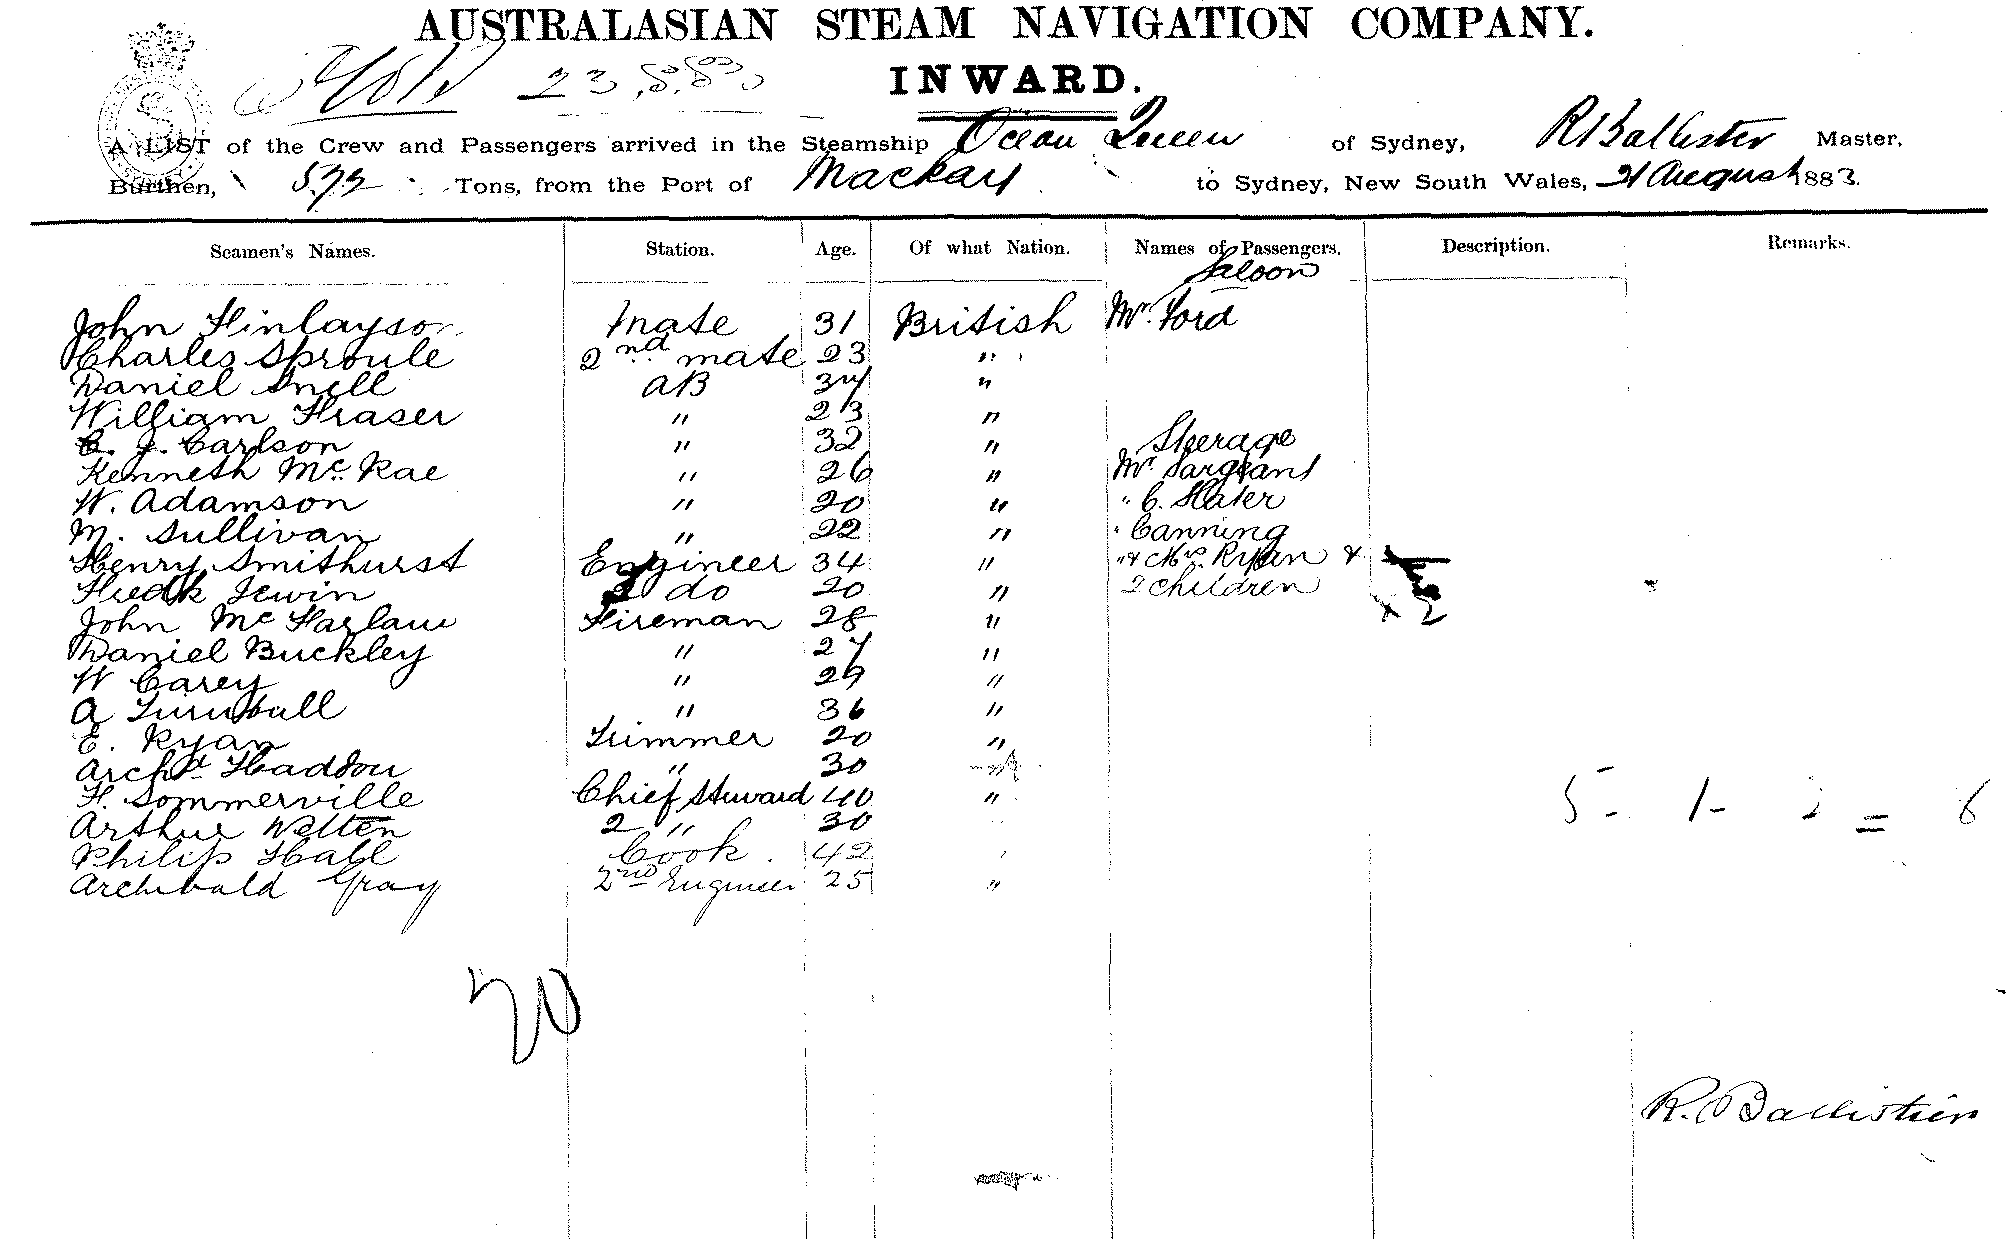 AUSTRALASIAN STEAM NAVIGATION COMPANY.
23.8.83
INWARD.
A LIST of the Crew and Passengers arrived in the Steamship Ocean Queen of Sydney, R Ballister Master,
Burthen, Tons, from the Port of Mackay to Sydney, New South Wales, 21 August 1883.
Seamen's Names. Station. Age. Of what Nation. Names of Passengers. Description. Remarks.
Saloon
John Finlayson Mate 31 British Mr. Ford
Charles Sproule 2nd mate 23 "
Daniel Snell AB 34 "
William Fraser " 23 "
C. J. Carlson " 32 " Steerage
Kenneth McRae " 26 " Mr Sargeant
W. Adamson " 20 " " C. Slater
M. Sullivan " 22 " " Canning
Henry Smithurst Engineer 34 " " & Mrs. Ryan &
Fredk Irwin do 20 " 2 children
John Mc Farlane Fireman 28 "
Daniel Buckley " 27 "
W Carey " 29 "
A Turnbull " 36 "
E. Ryan Trimmer 20 "
Archd Haddow " 30
H. Sommerville Chief Steward 40 "
Arthur Welten 2 " 30
Philip Hall Cook 42
Archibald Gray 2nd Engineer 25 "
5 - 1 - = 6
20
R. Ballister